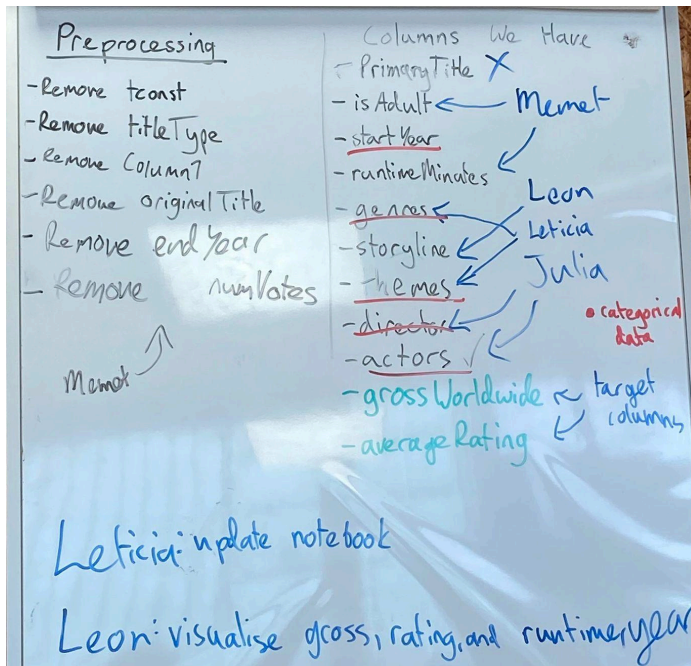 Preprocessing
- Remove tconst
- Remove titleType
- Remove Column7
- Remove originalTitle
- Remove endYear
- Remove numVotes
Memet
Columns We Have
- PrimaryTitle X
- isAdult
- startYear
- runtimeMinutes
- genres
- storyline
- themes
- director
- actors ✓
- grossWorldwide
- averageRating
Memet
Leon
Leticia
Julia
• categorical
data
target
columns
Leticia: update notebook
Leon: visualise gross, rating, and runtime, year